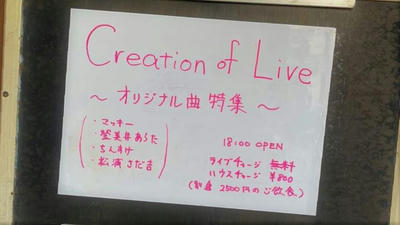 Creation of Live
～オリジナル曲特集～
・マッキー
・登美井あらた
・ちんすけ
・松浦さだ吉
18:00 OPEN
ライブチャージ 無料
ハウスチャージ ¥800
(別途 2500円のご飲食)